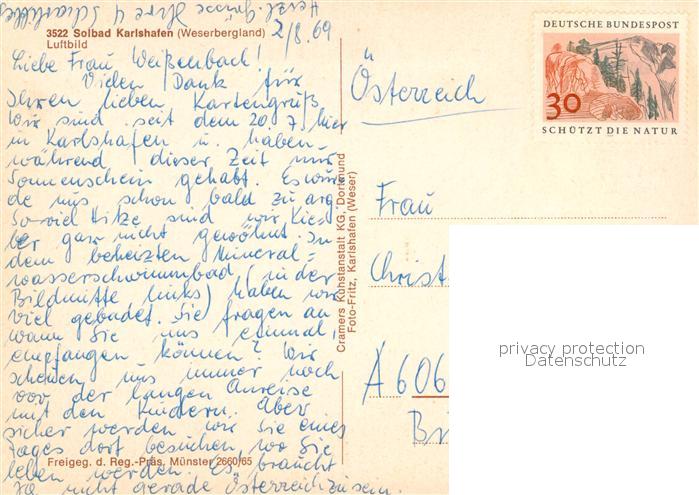 Herzl. Grüße Ihre 4
2/8.69
3522 Solbad Karlshafen (Weserbergland)
Luftbild
Liebe Frau Weißenbach!
Vielen Dank für
Ihren lieben Kartengruß
Wir sind seit dem 20.7. hier
in Karlshafen u. haben
während dieser Zeit nur
Sonnenschein gehabt. Es wur
de uns schon bald zu arg.
So viel Hitze sind wir Kie=
ler gar nicht gewöhnt. In
dem beheizten Mineral=
wasserschwimmbad (in der
Bildmitte, links) haben wir
viel gebadet. Sie fragen an
wann Sie uns einmal
empfangen können? Wir
scheuen uns immer noch
vor der langen Anreise
mit den Kindern. Aber
sicher werden wir Sie eines
Tages dort besuchen, wo Sie
leben werden. Es braucht
ja nicht gerade Österreich zu sein.
Freigeg. d. Reg.-Präs. Münster 2660/65
Cramers Kunstanstalt KG, Dortmund
Foto-Fritz, Karlshafen (Weser)
DEUTSCHE BUNDESPOST
30
SCHÜTZT DIE NATUR
Österreich
Frau
Christ
A 606
privacy protection
Datenschutz